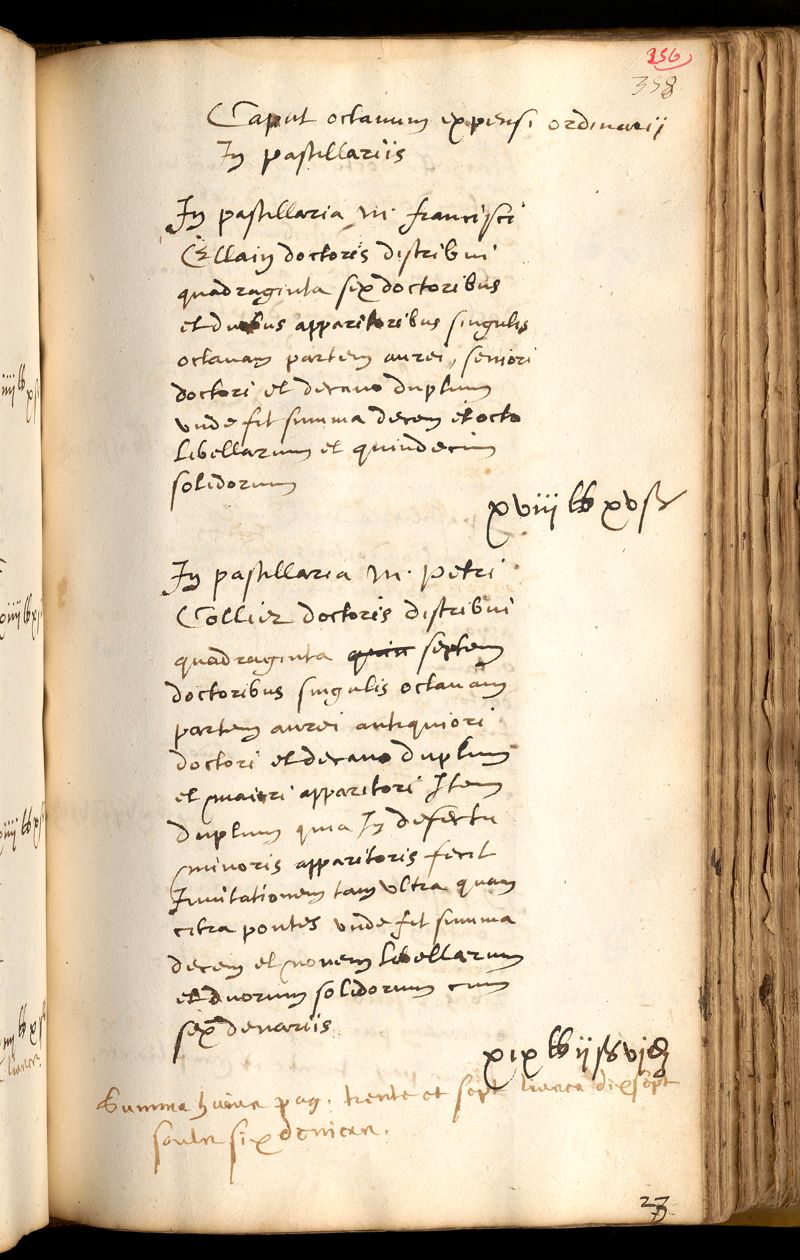 356
358
Caput octauum expensi ordinarij
In pastillariis
In pastillaria M. francisci
Ellain doctoris distribui
quadraginta sex doctoribus
et duobus apparitoribus singulis
octauam partem aurei, seniori
doctori et decano duplum
vnde fit summa decem et octo
libellarum et quindecim
solidorum
xviij lb xv ß
In pastillaria M. Petri
Collier doctoris distribui
quadraginta septem
doctoribus singulis octauam
partem aurei antiquiori
doctori et decano duplum
et maiori apparitori Item
duplum quia In defectu
minoris apparitoris fecit
Inuitationem tam vltra quam
citra pontes vnde fit summa
decem et novem libellarum
et duorum solidorum cum
sex denariis
xix lb ij ß vj d
Summa huius pag. trente et sept liures dix sept
soulz six deniers.
27